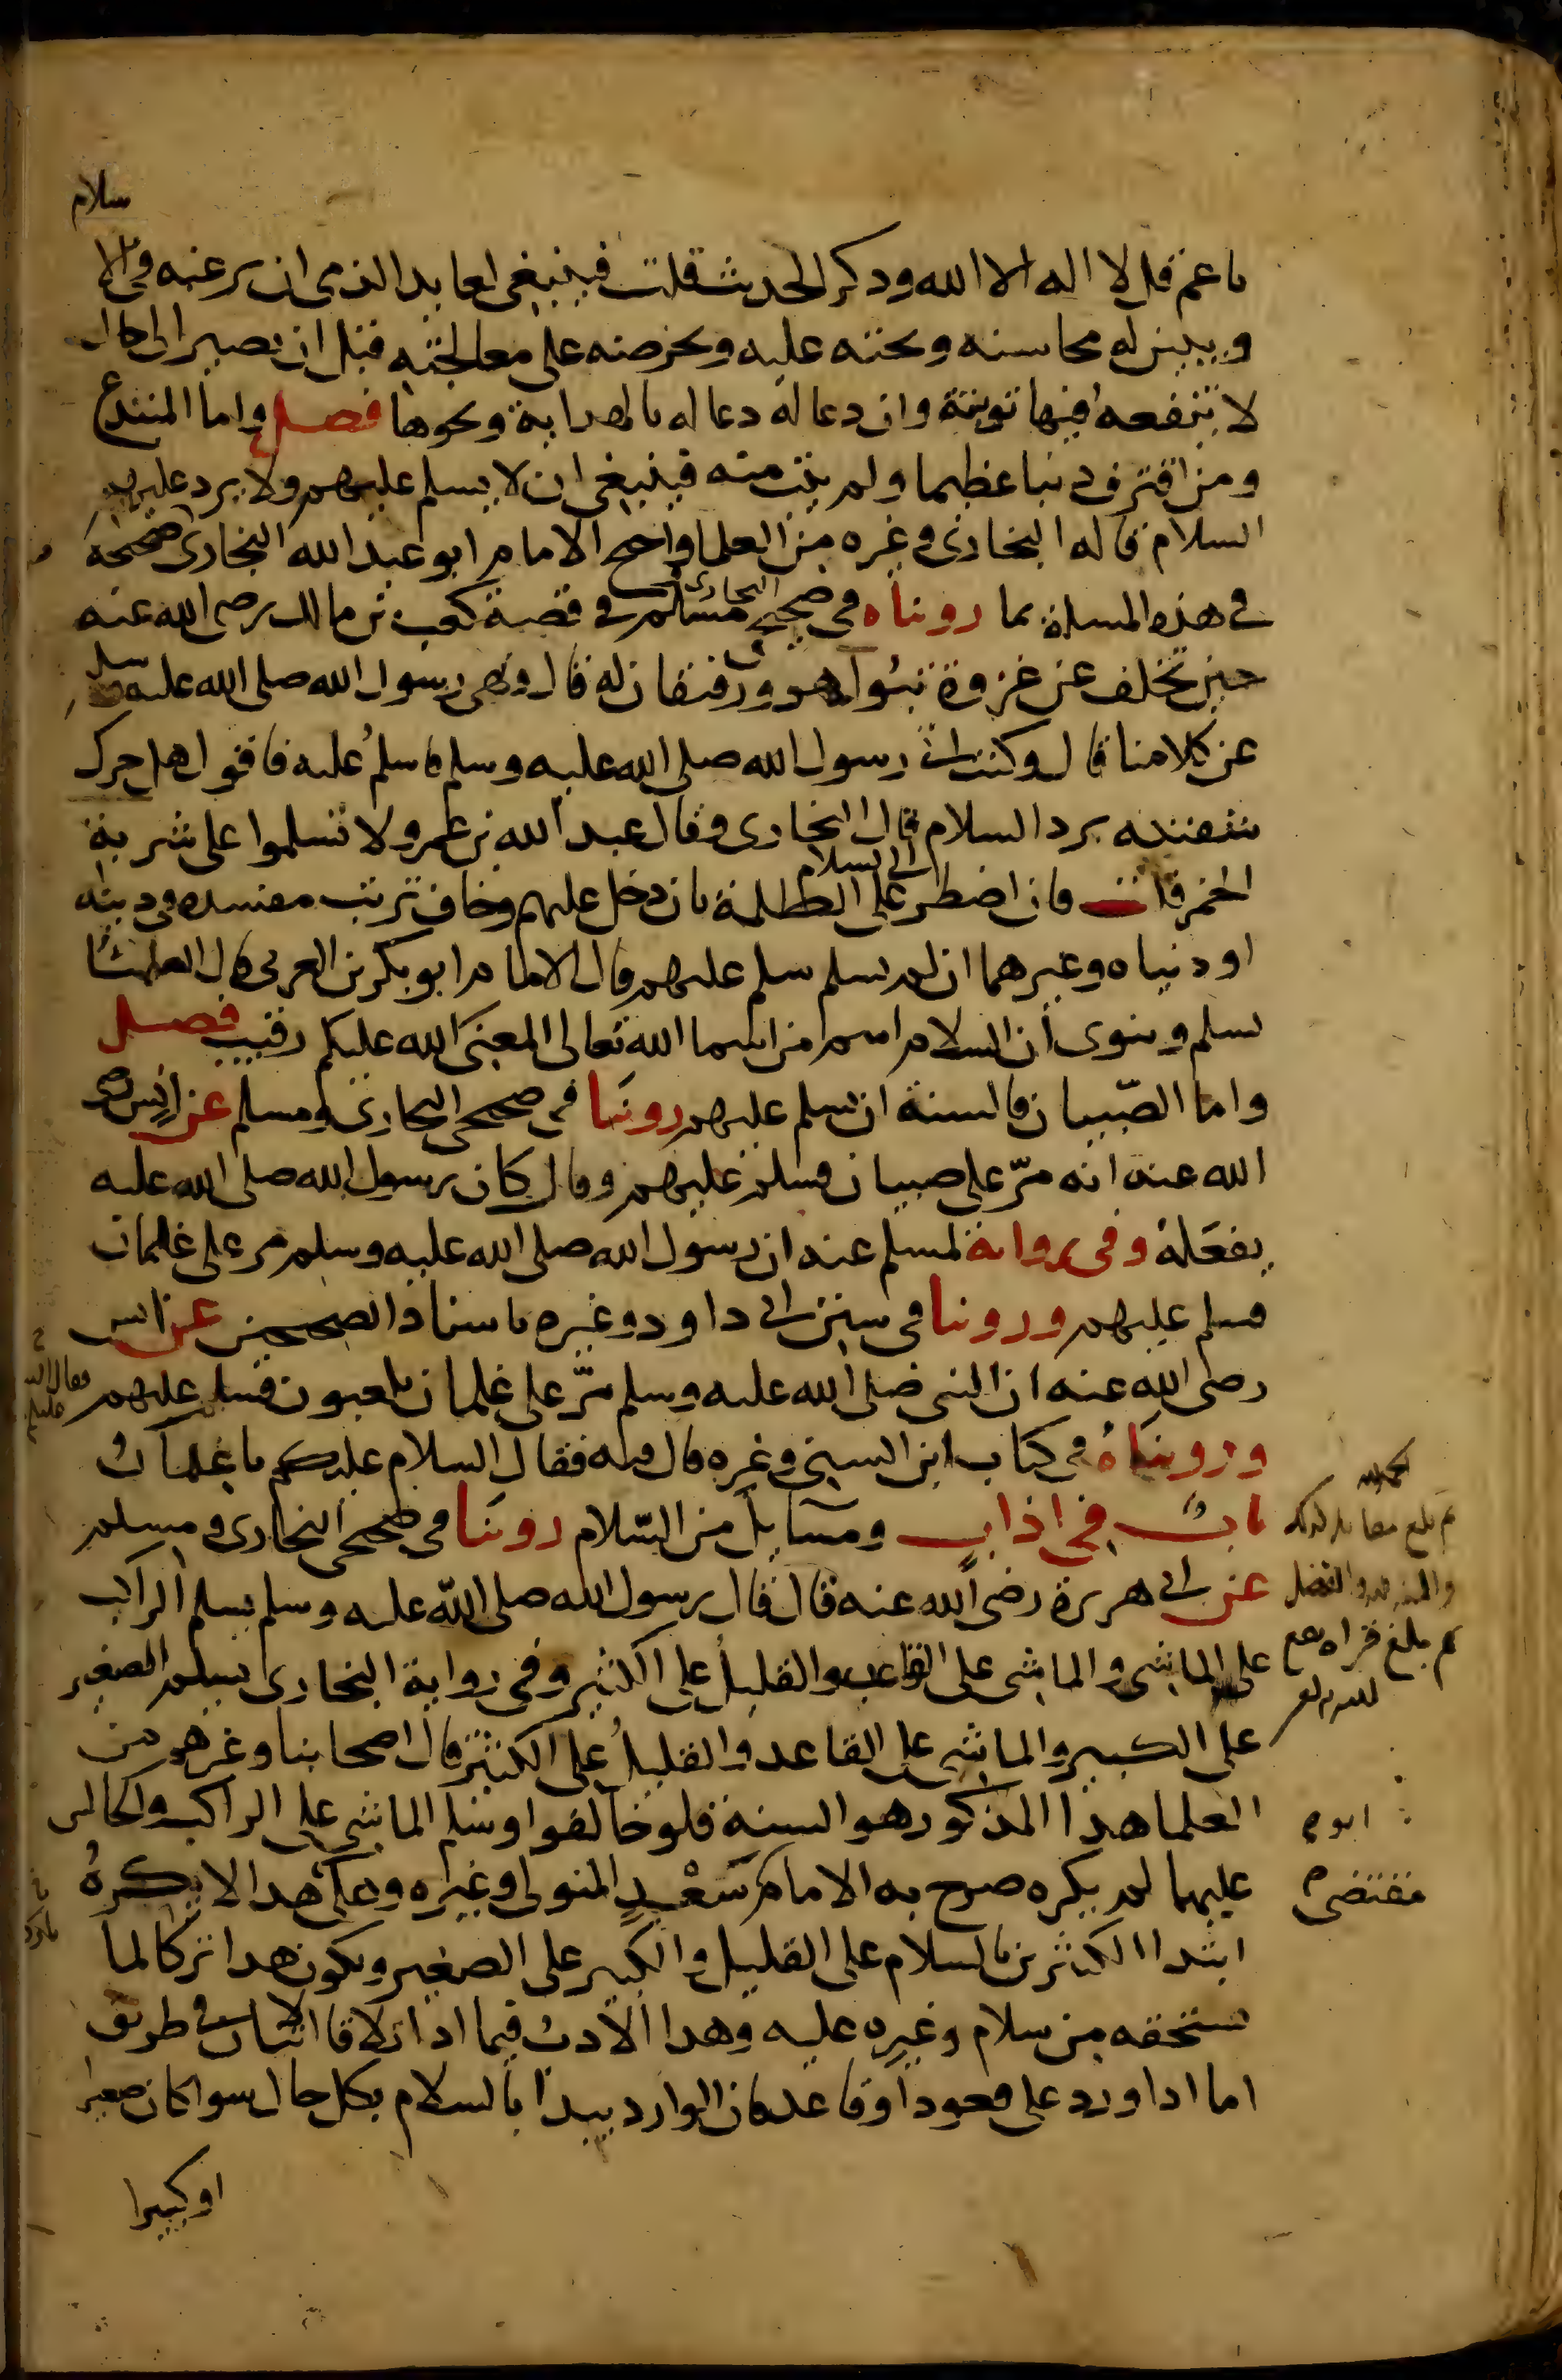 سلام
يا عم قل لا اله الا الله ودكر الحديث قلت فينبغي لعايد الذمي ان يرغبه في الا
ويبين له محاسنه ويحثه عليه ويحرضه على معالجته قبل ان يصير الى حال
لا ينفعه فيها توبته وان دعا له دعا له بالهداية ونحوها فصل واما المبتدع
ومن اقترف دنبا عظيما ولم يتب منه فينبغي ان لا يسلم عليهم ولا يرد عليهم
السلام قاله البخاري وغيره من العلما واحتج الامام ابو عبد الله البخاري صحيحه
في هذه المسلة بما رويناه في صحيحي البخاري مسلم في قصة كعب بن مالك رضي الله عنه
حين تخلف عن غزوة تبوك هو ورفيقان له قال ونهى رسول الله صلى الله عليه وسلم
عن كلامنا قال وكنت اتي رسول الله صلى الله عليه وسلم فاسلم عليه فاقول هل حرك
شفتيه برد السلام قال البخاري وقال عبد الله بن عمرو لا تسلموا على شربة
الخمر قلت فان اضطر الى السلام على الظلمة بان دخل عليهم وخاف ترتب مفسده في دينه
او دنياه وغيرهما ان لم يسلم سلم عليهم قال الامام ابو بكر بن العربي قال العلما
يسلم وينوي ان السلام اسم من اسما الله تعالى المعنى الله عليكم رقيب فصل
واما الصبيان فالسنة ان يسلم عليهم روينا في صحيحي البخاري ومسلم عن انس رضي
الله عنه انه مر على صبيان فسلم عليهم وقال كان رسول الله صلى الله عليه
يفعله وفي رواية لمسلم عنه ان رسول الله صلى الله عليه وسلم مر على غلمان
فسلم عليهم وروينا في سنن ابي داود وغيره باسناد الصحيحين عن انس
رضي الله عنه ان النبي صلى الله عليه وسلم مر على غلمان يلعبون فسلم عليهم
ورويناه في كتاب ابن السني وغيره قال فيه فقال السلام عليكم يا غلمان
باب في اداب ومسايل من السلام روينا في صحيحي البخاري ومسلم
عن ابي هريرة رضي الله عنه قال قال رسول الله صلى الله عليه وسلم يسلم الراكب
على الماشي والماشي على القاعد والقليل على الكثير وفي رواية البخاري يسلم الصغير
على الكبير والماشي على القاعد والقليل على الكثير قال اصحابنا وغيرهم من
العلما هدا المذكور هو السنة فلو خالفوا وسلم الماشي على الراكب والجالس
عليهما لم يكره صرح به الامام سعد المتولي وغيره وعلى هدا لا يكره
ابتدا الكثيرين بالسلام على القليل والكبير على الصغير ويكون هدا تركا لما
يستحقه من سلام وغيره عليه وهدا الادب فيما ادا تلاقا اثنان في طريق
اما ادا ورد على قعود او قاعد فان الوارد يبدا بالسلام بكل حال سوا كان صغيرا
او كبيرا
ابو
مقتضى